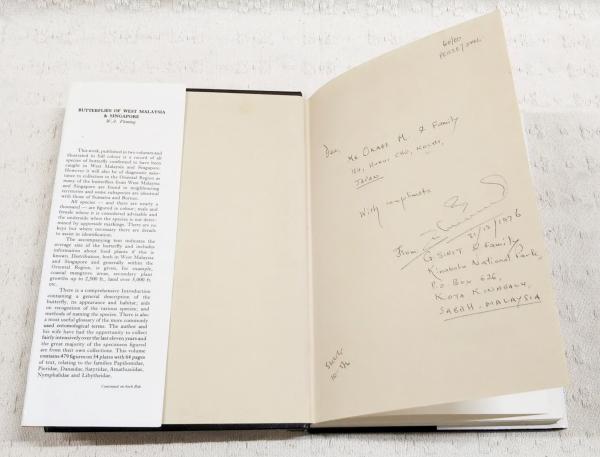 BUTTERFLIES OF WEST MALAYSIA
& SINGAPORE
W. A. Fleming
This work, published in two volumes and
illustrated in full colour is a record of all
species of butterfly confirmed to have been
caught in West Malaysia and Singapore.
However it will also be of diagnostic assis-
tance to collectors in the Oriental Region as
many of the butterflies from West Malaysia
and Singapore are found in neighbouring
territories and some subspecies are identical
with those of Sumatra and Borneo.
All species — and there are nearly a
thousand — are figured in colour; male and
female where it is considered advisable and
the underside when the species is not deter-
mined by upperside markings. There are no
keys but where necessary there are details
to assist in identification.
The accompanying text indicates the
average size of the butterfly and includes
information about food plants if this is
known. Distribution, both in West Malaysia
and Singapore and generally within the
Oriental Region, is given, for example,
coastal mangrove areas, secondary plant
growths up to 2,500 ft., land over 3,000 ft.
etc.
There is a comprehensive Introduction
containing a general description of the
butterfly, its appearance and habitat; aids
on recognition of the various species; and
methods of naming the species. There is also
a most useful glossary of the more commonly
used entomological terms. The author and
his wife have had the opportunity to collect
fairly intensively over the last eleven years and
the great majority of the specimens figured
are from their own collections. This volume
contains 479 figures on 54 plates with 64 pages
of text, relating to the families Papilionidae,
Pieridae, Danaidae, Satyridae, Amathusiidae,
Nymphalidae and Libytheidae.
Continued on back flap
Dear Mr. Okabe M. & Family
CHO, KOCHI,
JAPAN
With compliments
From 21/12/1976
G. SINIT & Family
Kinabalu National Park,
P.O Box 626,
KOTA KINABALU,
SABAH. MALAYSIA